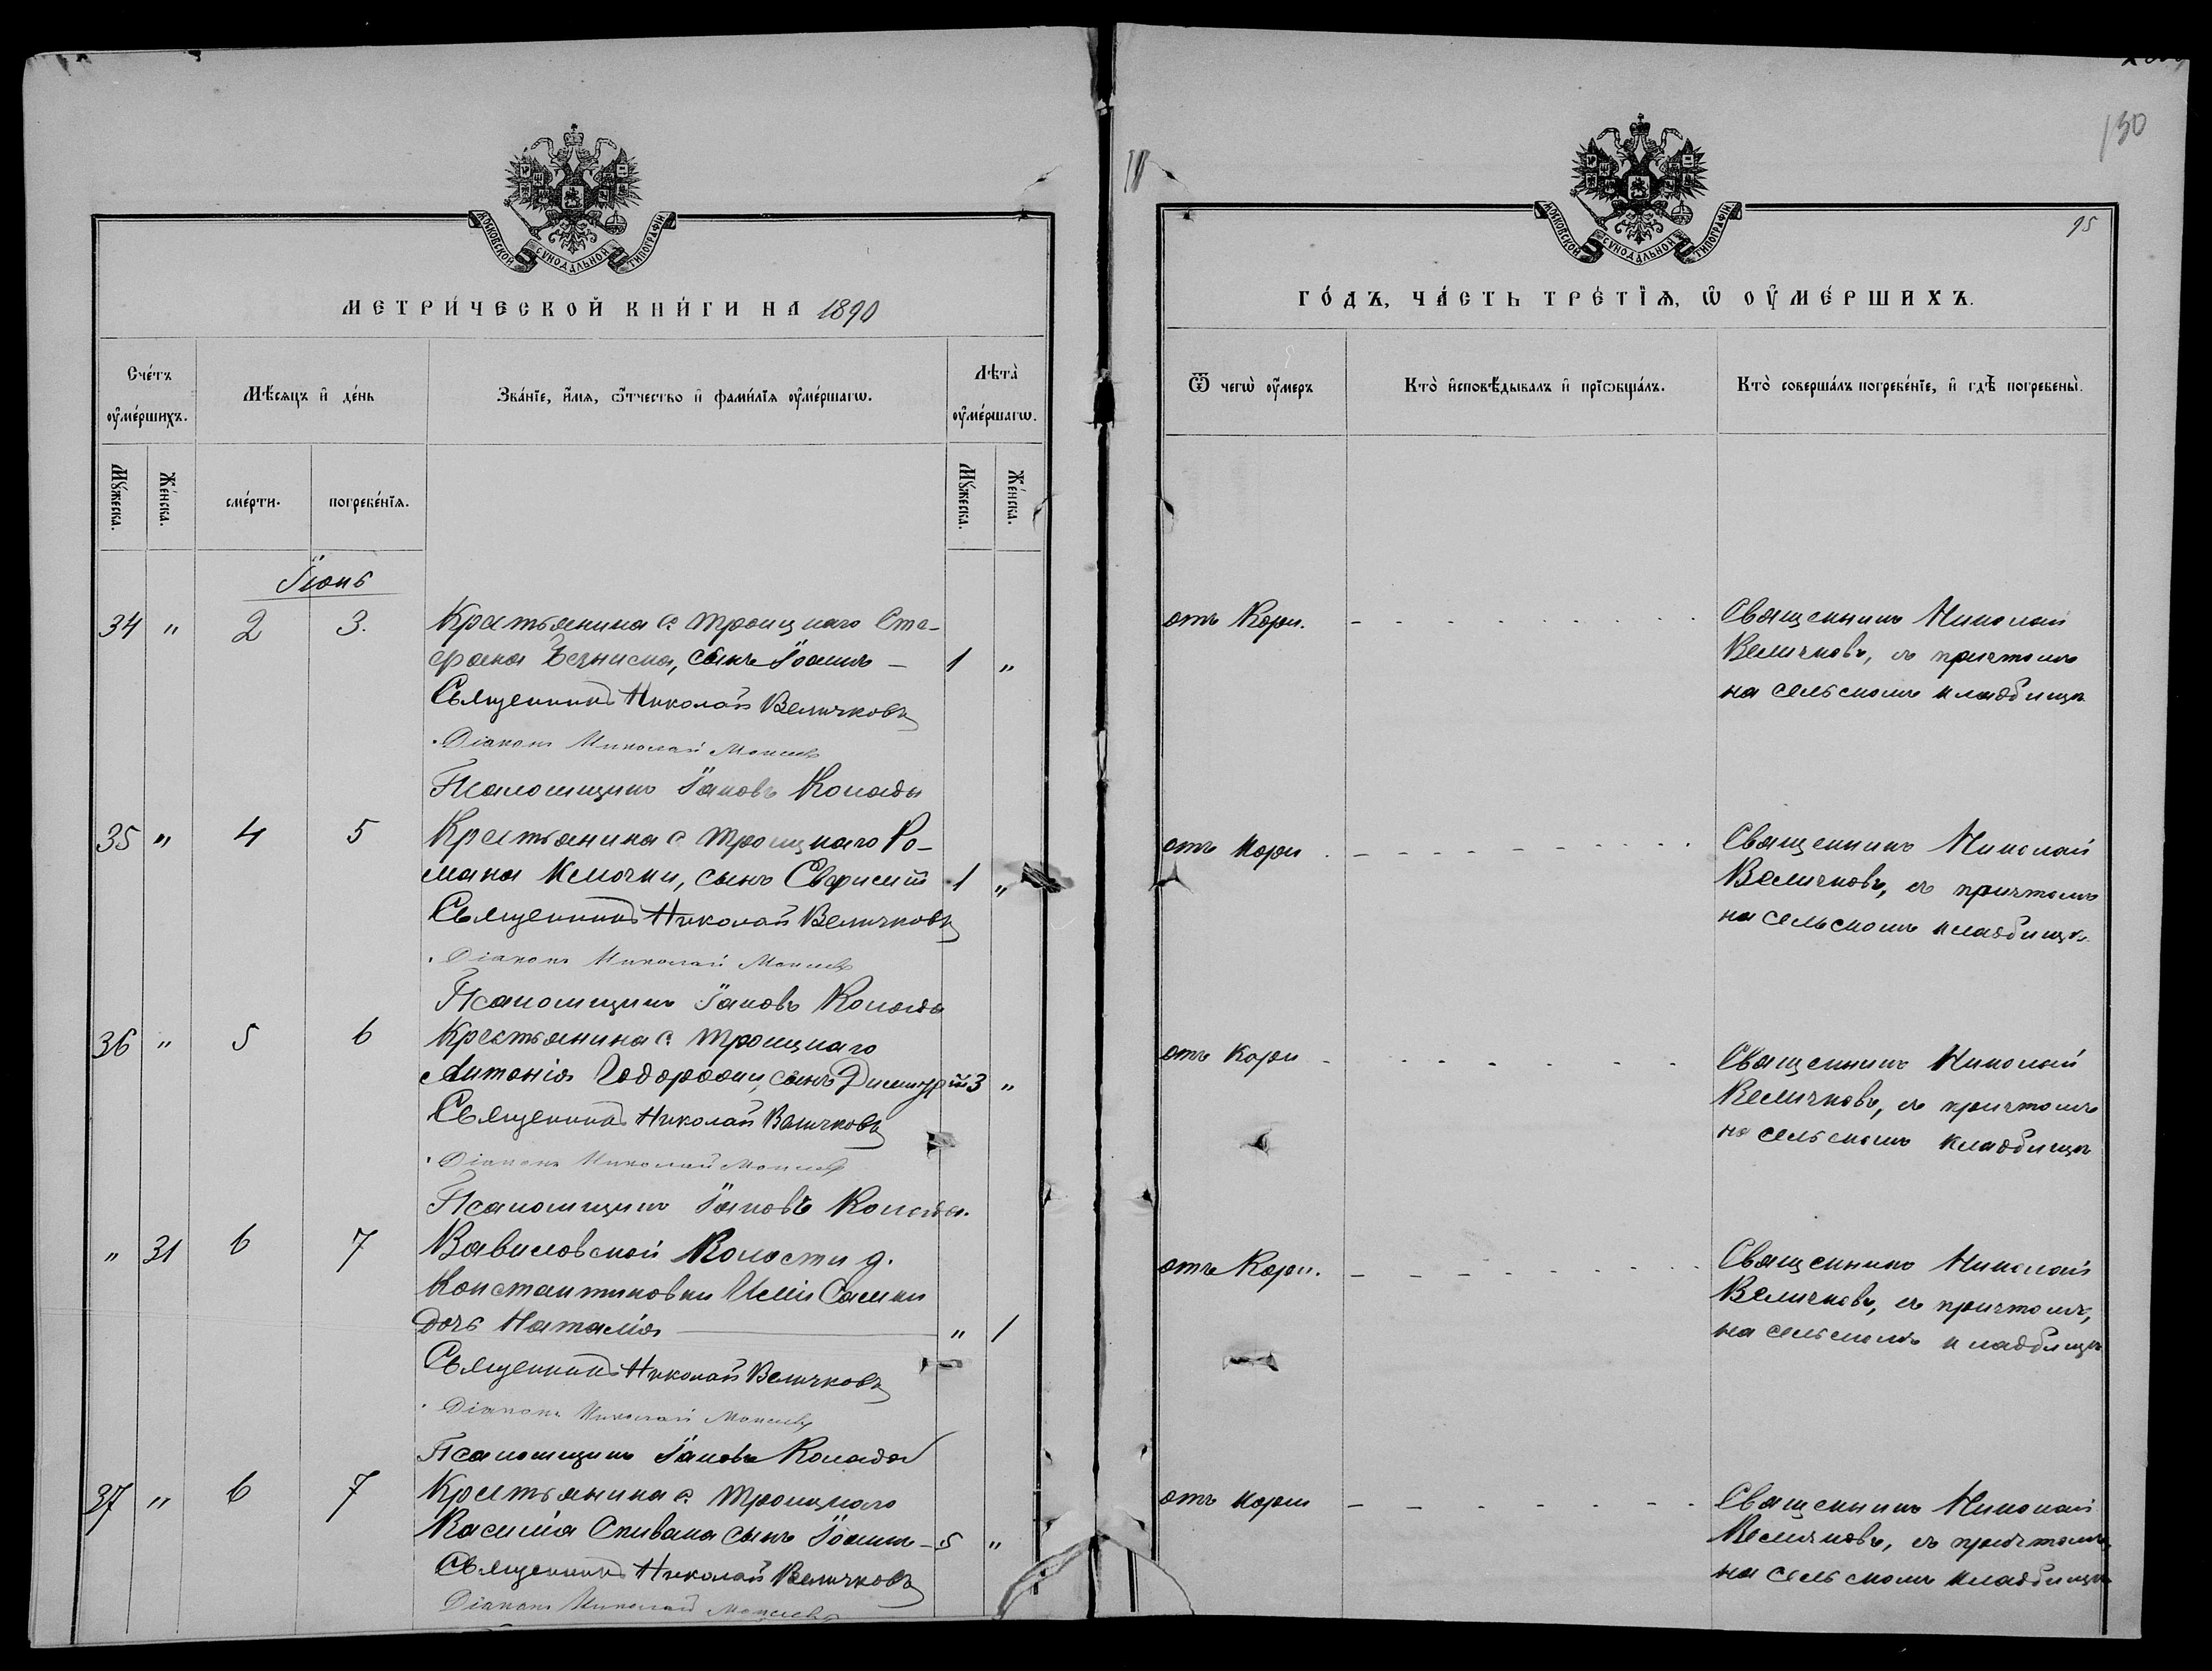 130
95
МОСКОВСКОЙ СѴНОДАЛЬНОЙ ТИПОГРАФІИ
МЕТРИ́ЧЕСКОЙ КНИ́ГИ НА 1890
Сче́тъ оу҆ме́ршихъ.
Мѣ́сяцъ и҆ де́нь
Зва́нїе, и҆́мя, ѻ҆́тчество и҆ фами́лїя оу҆ме́ршагѡ.
Лѣта̀ оу҆ме́ршагѡ.
Мꙋ́жеска.
Же́нска.
сме́рти.
погребе́нїя.
Мꙋ́жеска.
Же́нска.
Іюнь
34 " 2 3. Крестьянина с. Троицкаго Сте-
фана сынъ Іоаннъ – 1 "
Священникъ Николай Величковъ
Діаконъ Николай
Псаломщикъ Іаковъ Колода
35 " 4 5 Крестьянина с. Троицкаго Ро-
мана Клочки, сынъ Евфимій 1 "
Священникъ Николай Величковъ
Діаконъ Николай
Псаломщикъ Іаковъ Колода
36 " 5 6 Крестьянина с. Троицкаго
Антонія сынъ Димитрій 3 "
Священникъ Николай Величковъ
Діаконъ Николай
Псаломщикъ Іаковъ Колода.
" 31 6 7 Вавиловской Волости д.
Константиновки Иліи Сашки
дочь Наталія " 1
Священникъ Николай Величковъ
Діаконъ Николай
Псаломщикъ Іаковъ Колода
37 " 6 7 Крестьянина с. Троицкаго
Василія Спивака сынъ Іоаннъ – 5 "
Священникъ Николай Величковъ
Діаконъ Николай
МОСКОВСКОЙ СѴНОДАЛЬНОЙ ТИПОГРАФІИ
ГО́ДЪ, ЧА́СТЬ ТРЕ́ТЇѦ, Ѡ҆ ОУ҆МЕ́РШИХЪ.
Ѿ чегѡ̀ оу҆́меръ
Кто̀ и҆сповѣ́дывалъ и҆ прїѡбща́лъ.
Кто̀ соверша́лъ погребе́нїе, и҆ гдѣ̀ погребены̀.
отъ Кори. Священникъ Николай
Величковъ, съ причтомъ
на сельскомъ кладбищѣ
отъ кори. Священникъ Николай
Величковъ, съ причтомъ
на сельскомъ кладбищѣ.
отъ Кори Священникъ Николай
Величковъ, съ причтомъ
на сельскомъ кладбищѣ
отъ Кори. Священникъ Николай
Величковъ, съ причтомъ,
на сельскомъ кладбищѣ
отъ кори Священникъ Николай
Величковъ, съ причтомъ,
на сельскомъ кладбищѣ